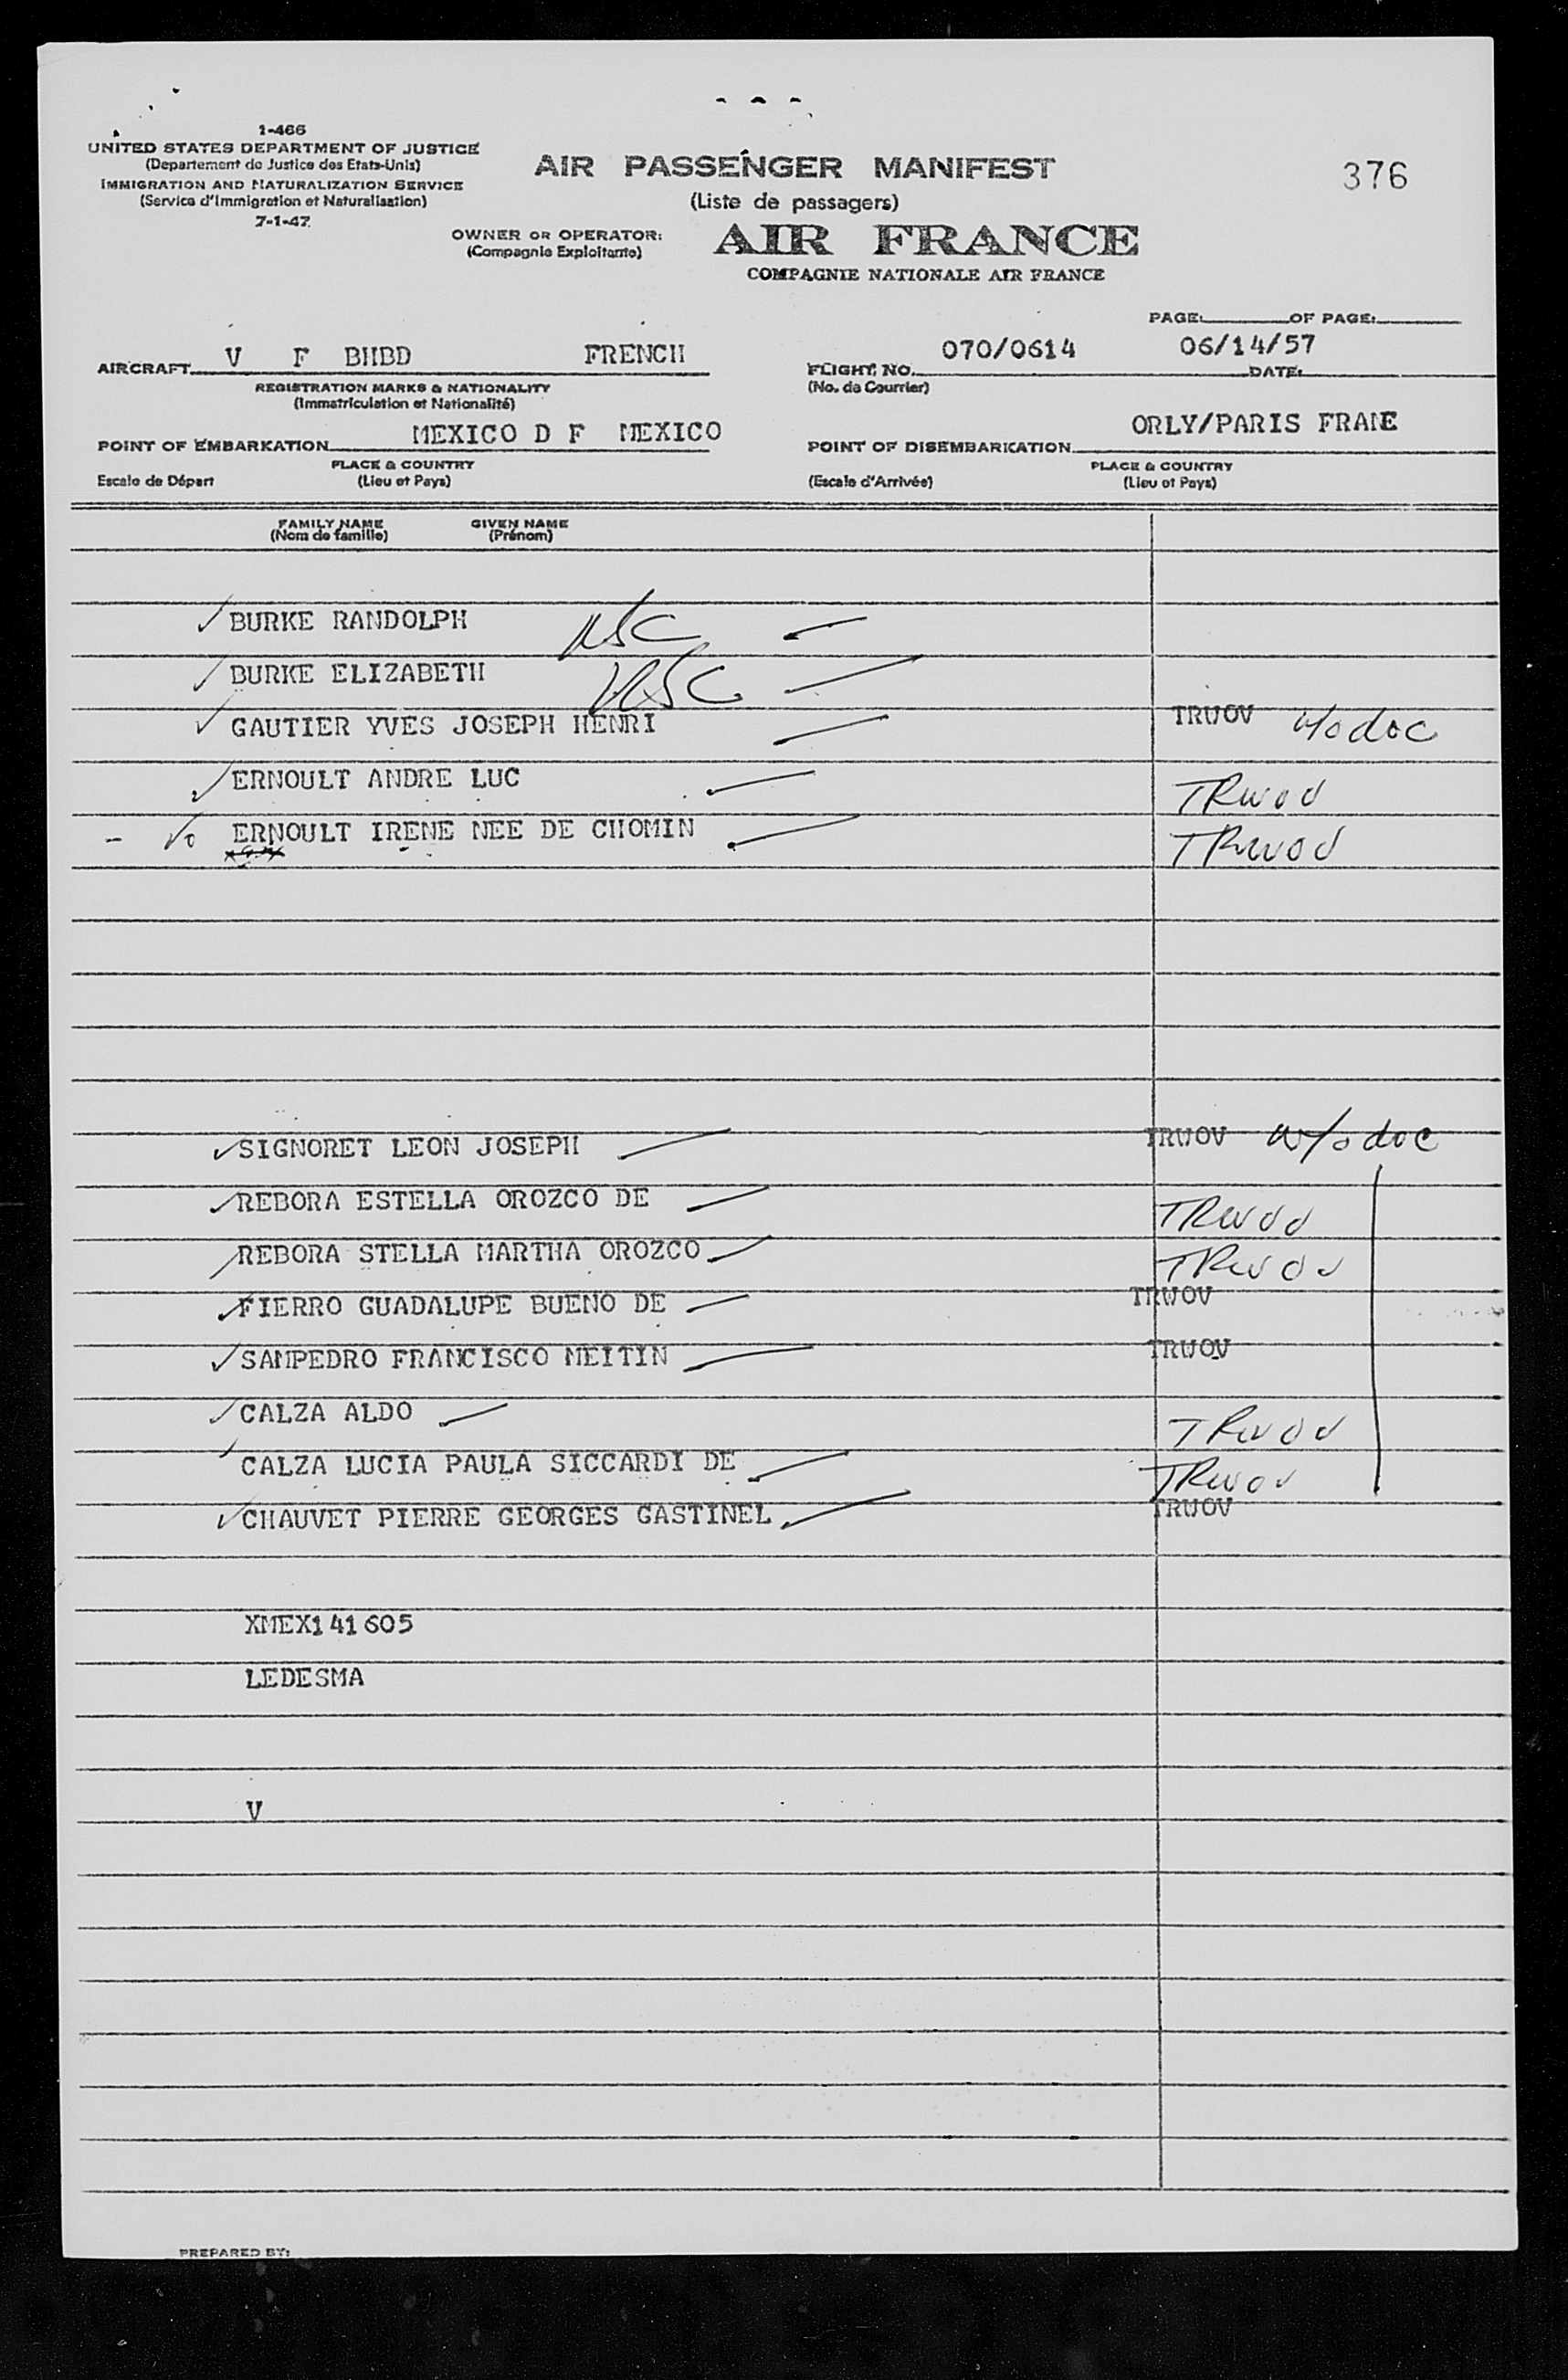 1-466
UNITED STATES DEPARTMENT OF JUSTICE
(Departement de Justice des Etats-Unis)
IMMIGRATION AND NATURALIZATION SERVICE
(Service d'Immigration et Naturalisation)
7-1-47
AIR PASSENGER MANIFEST
(Liste de passagers)
376
OWNER OR OPERATOR:
(Compagnie Exploitante)
AIR FRANCE
COMPAGNIE NATIONALE AIR FRANCE
PAGE: OF PAGE:
AIRCRAFT V F BHBD FRENCH
REGISTRATION MARKS & NATIONALITY
(Immatriculation et Nationalité)
FLIGHT NO. 070/0614 06/14/57 DATE:
(No. de Courrier)
POINT OF EMBARKATION MEXICO D F MEXICO
PLACE & COUNTRY
Escale de Départ (Lieu et Pays)
POINT OF DISEMBARKATION ORLY/PARIS FRANE
PLACE & COUNTRY
(Escale d'Arrivée) (Lieu et Pays)
FAMILY NAME GIVEN NAME
(Nom de famille) (Prénom)
BURKE RANDOLPH USC
BURKE ELIZABETH USC
GAUTIER YVES JOSEPH HENRI TRWOV w/o doc
ERNOULT ANDRE LUC TRWOV
ERNOULT IRENE NEE DE CHOMIN TRWOV
SIGNORET LEON JOSEPH TRWOV w/o doc
REBORA ESTELLA OROZCO DE TRWOV
REBORA STELLA MARTHA OROZCO TRWOV
FIERRO GUADALUPE BUENO DE TRWOV
SAMPEDRO FRANCISCO MEITIN TRWOV
CALZA ALDO TRWOV
CALZA LUCIA PAULA SICCARDI DE TRWOV
CHAUVET PIERRE GEORGES GASTINEL TRWOV
XMEX141605
LEDESMA
V
PREPARED BY: